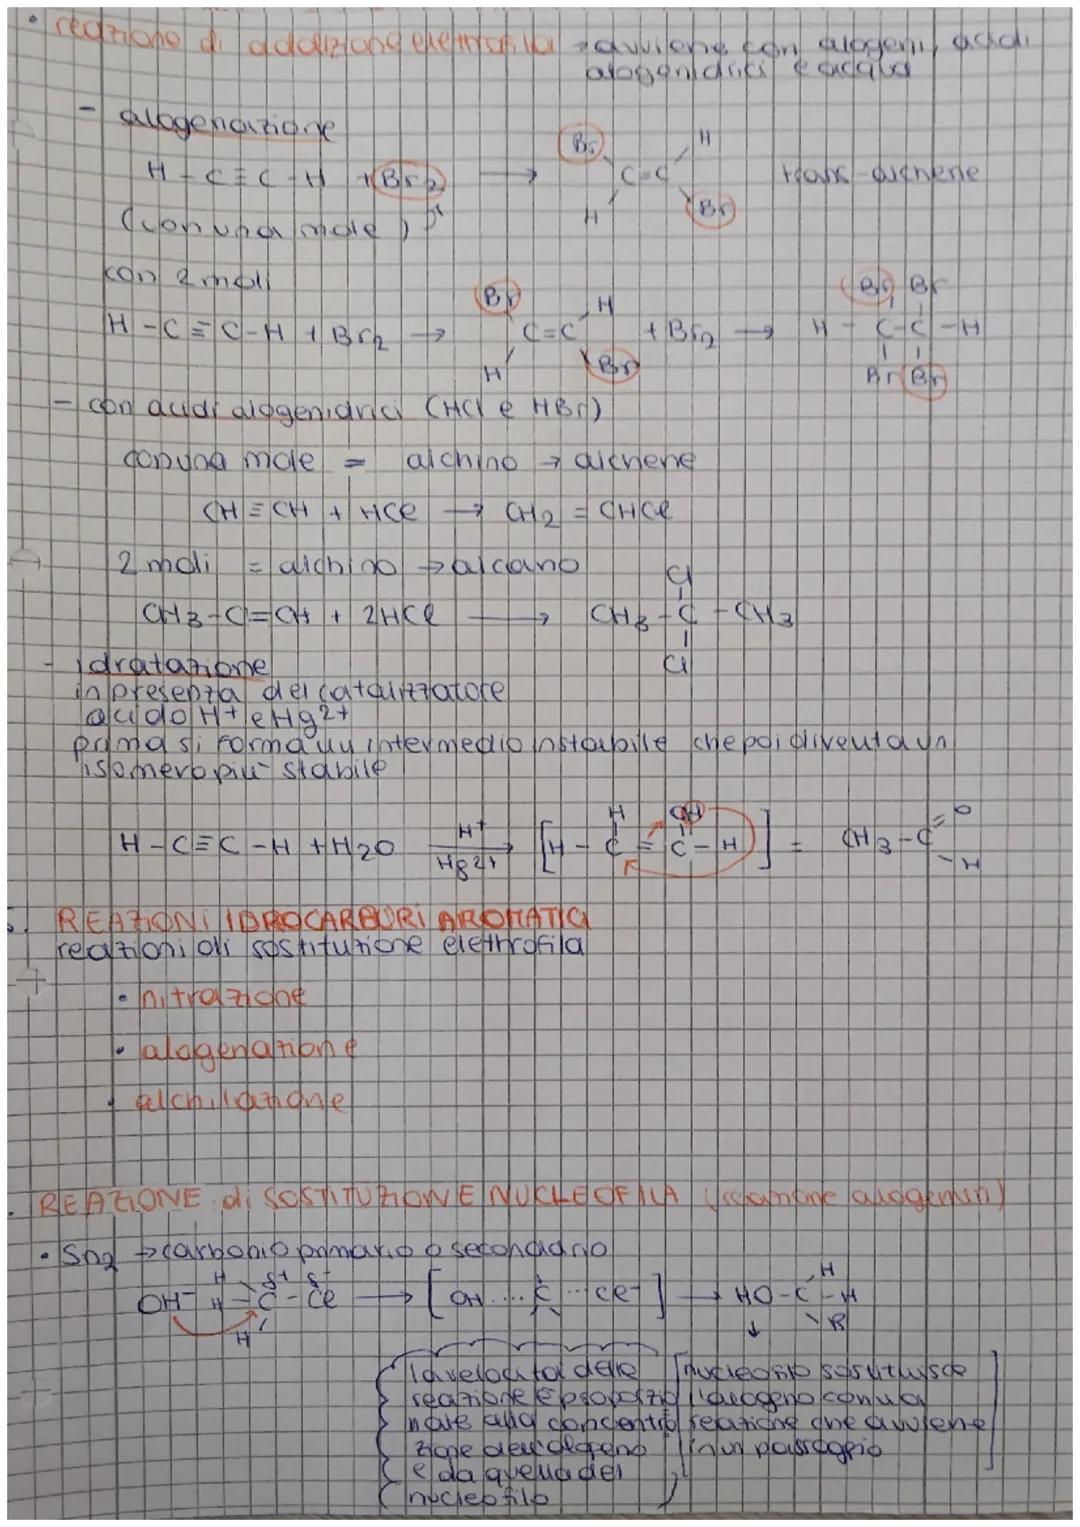 • reazione di addizione elettrofila → avviene con alogeni, acidi
alogenidrici e acqua
- alogenazione
H - C ≡ C - H + Br2 → Br H C=C H Br trans-alchene
(con una mole)
con 2 moli
H - C ≡ C - H + Br2 → Br H C=C H Br + Br2 → Br Br H - C - C - H Br Br
- con acidi alogenidrici (HCl e HBr)
con una mole = alchino → alchene
CH ≡ CH + HCl → CH2 = CHCl
2 moli = alchino → alcano
CH3 - C = CH + 2HCl → CH3 - C - CH3 Cl Cl
- idratazione
in presenza del catalizzatore
acido H+ e Hg2+
prima si forma un intermedio instabile che poi diventa un
isomero più stabile
H - C ≡ C - H + H2O H+ Hg2+ → [H - C H = C OH - H] = CH3 - C = O - H
REAZIONI IDROCARBURI AROMATICI
reazioni di sostituzione elettrofila
• nitrazione
• alogenazione
• alchilazione
REAZIONE di SOSTITUZIONE NUCLEOFILA
• Sn2 → carbonio primario o secondario
OH- H H H C δ+ - Cl δ- → [OH .... C ... Cl-] → HO - C H - H R
la velocità della
reazione è proporzio
nale alla concentra
zione dell'alogeno
e da quella del
nucleofilo
nucleofilo sostituisce
l'alogeno con una
reazione che avviene
in un passaggio